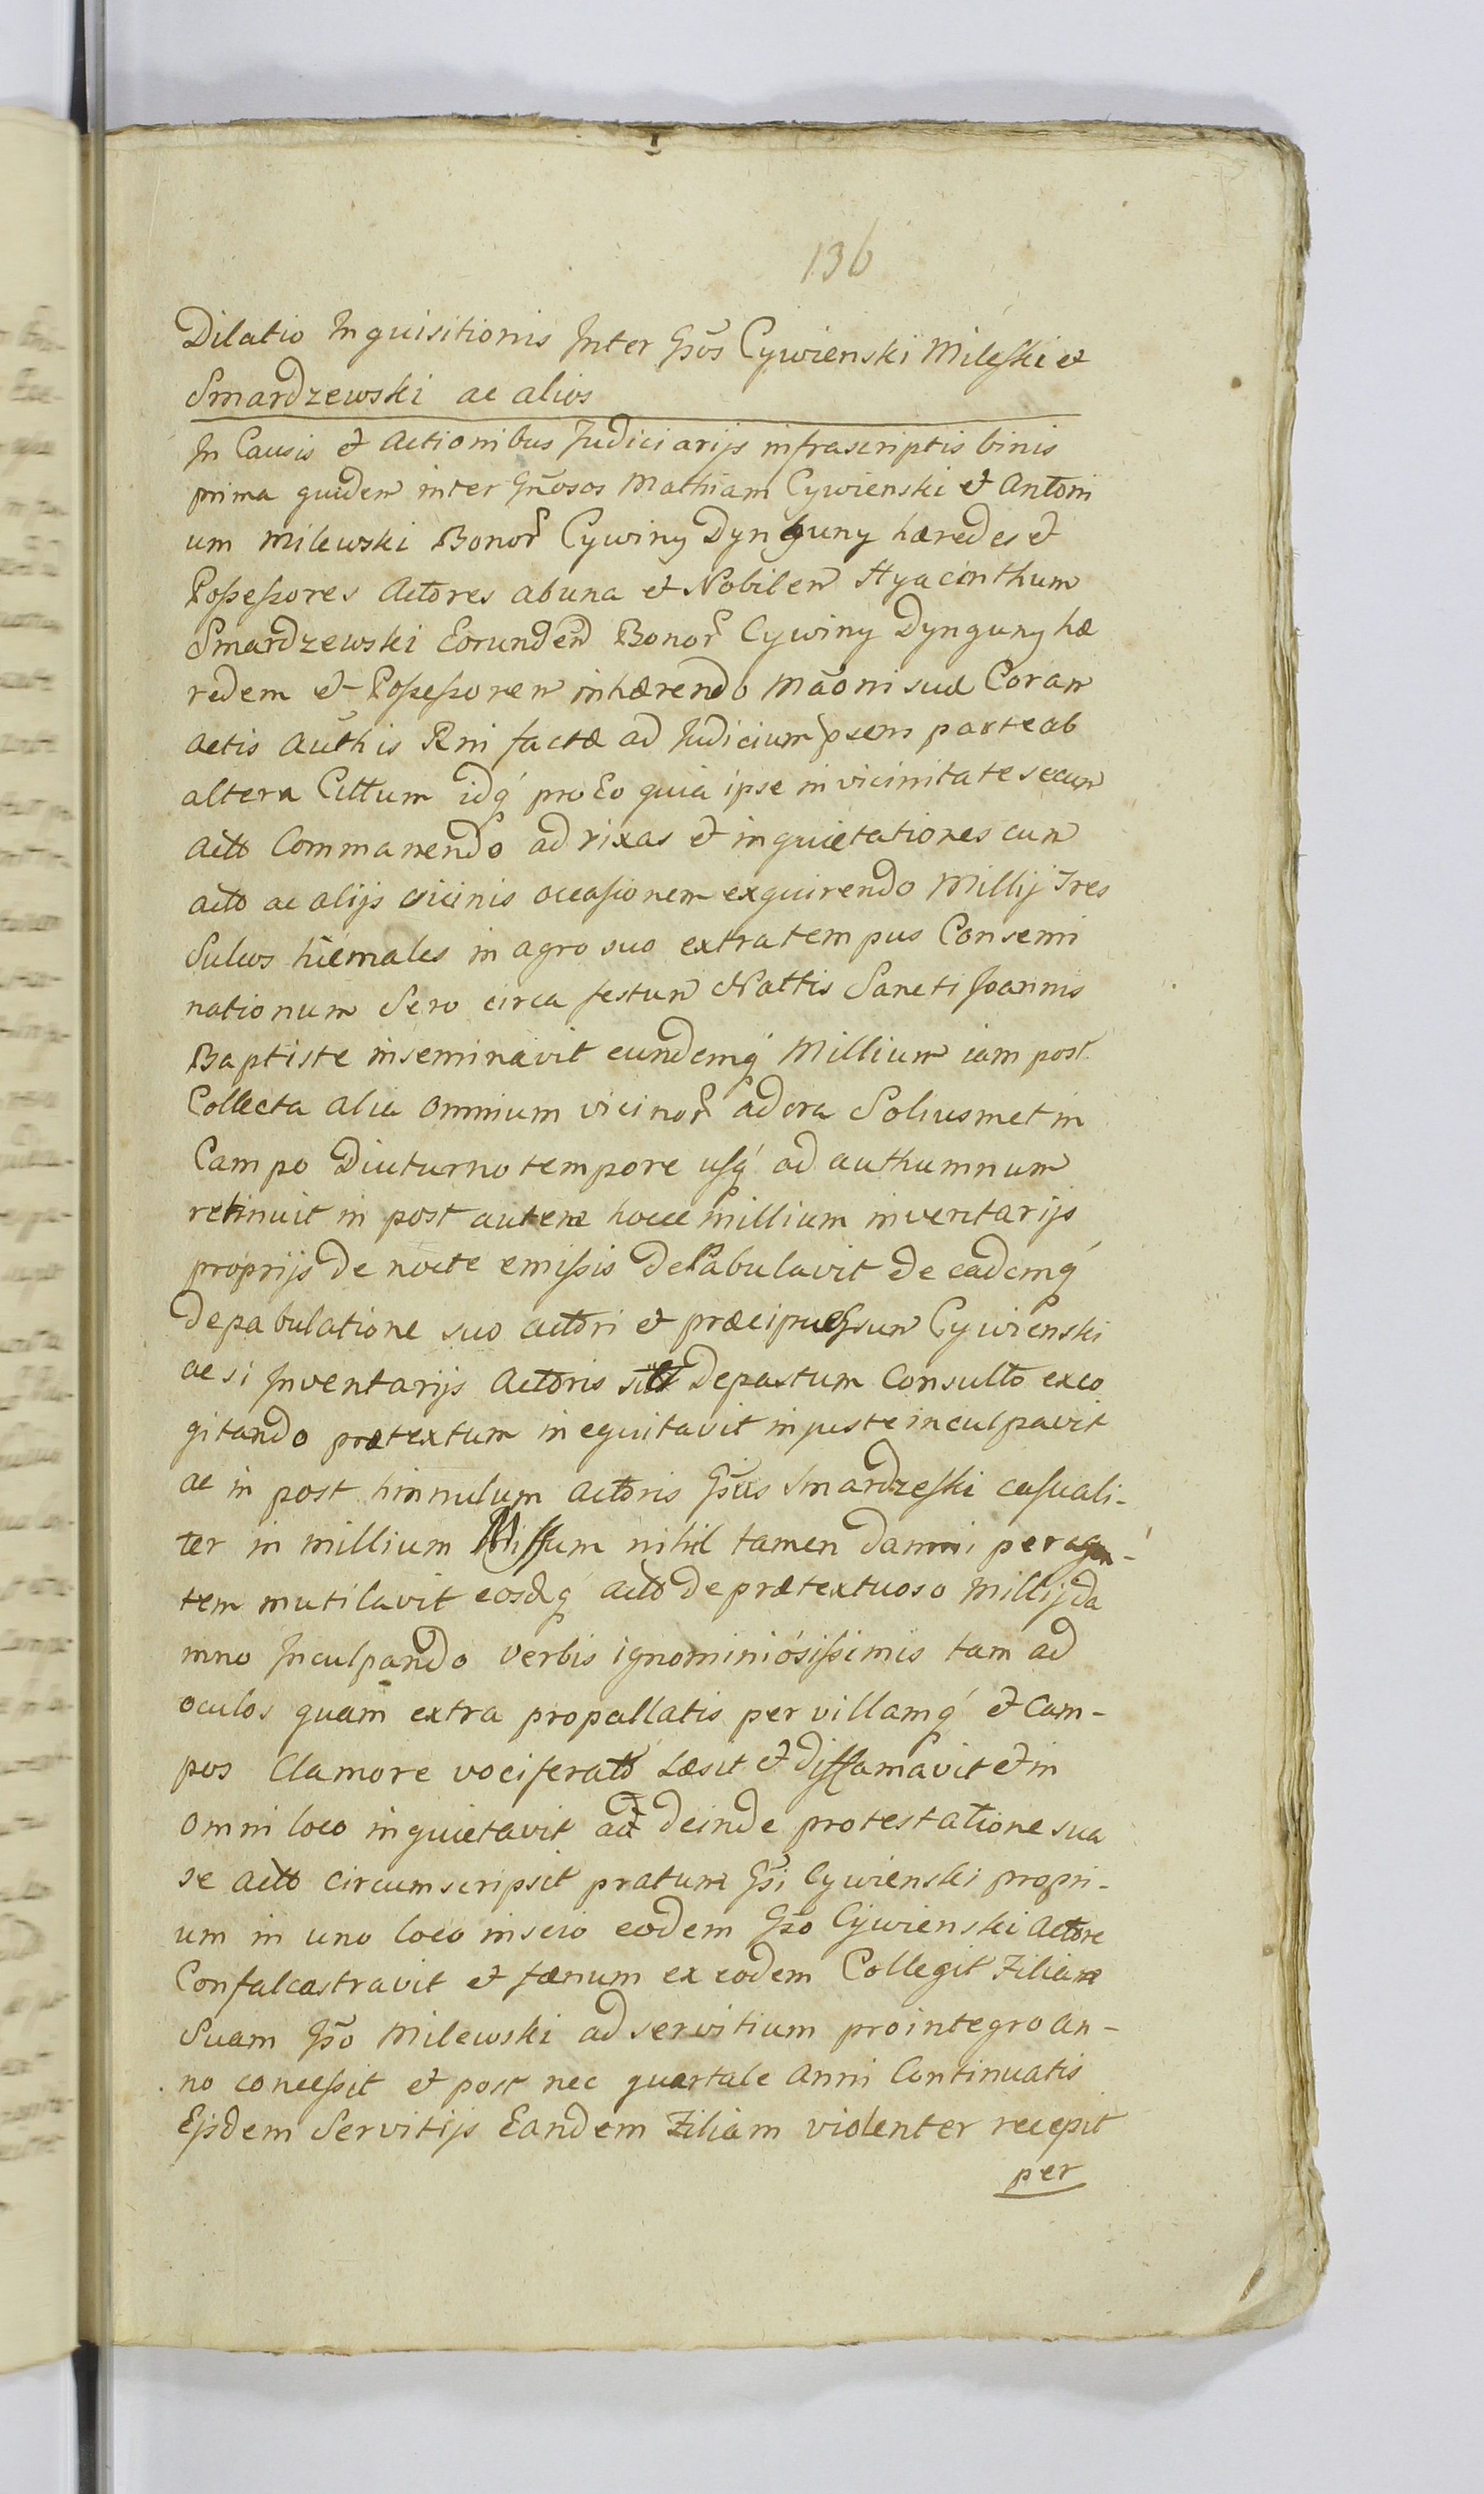 136
Dilatio Inquisitionis Inter Gs̃os Cywienski Mileski et
Smardzewski ac alios
In Causis et Actionibus Judiciarijs infrascriptis binis
prima quidem inter Gñosos Mathiam Cywienski et Antoni
um Milewski Bonor Cywiny Dynguny hæredes et
Possessores Actores ab una et Nobilem Hyacinthum
Smardzewski Eorundem Bonor Cywiny Dynguny hæ
redem et Possessorem inhærendo Mãoni suæ Coram
actis Authis Rni factæ ad Judicium psens parte ab
altera Cittum idq́ pro Eo quia ipse in vicinitate secum
Actto Commanendo ad rixas et inquietationes cum
acto ac alijs vicinis occasionem exquirendo Millij Tres
Sulcos hiemales in agro suo extra tempus Consemi
nationum Sero circa festum Nattis Sancti Joannis
Baptiste inseminavit eundemq́ Millium iam post
Collecta alia omnium vicinor adora Soliusmet in
Campo Diuturno tempore usq́ ad authumnum
retinuit in post autem hocce millium inventarijs
proprijs de nocte emissis dePabulavit de eademq́
depabulatione suo actori et præcipue Gsum Cywienski
ac si Inventarijs Actoris sit Depastum Consulto exco
gitando prætextum inequitavit injuste inculpavit
ac in post hinnulum Actoris Gsus Smardzeski casuali-
ter in millium Missum nihil tamen damni peragen-
tem mutilavit eosdq́ actto de prætextuoso Millij da
mno Inculpando verbis ignominiosissimis tam ad
oculos quam extra propallatis per villamq́ et Cam-
pos Clamore vociferato Læsit et diffamavit et in
omni loco inquietavit ad deinde protestatione sua
se actto circumscripsit pratum Gs̃i Cywienski propri-
um in uno loco inscio eodem Gs̃o Cywienski Actore
Confalcastravit et fænum ex eodem Collegit Filiam
Suam Gs̃o Milewski ad servitium pro integro an-
no concessit et post nec quartale Anni Continuatis
Ejsdem Servitijs Eandem Filiam violenter recepit
per